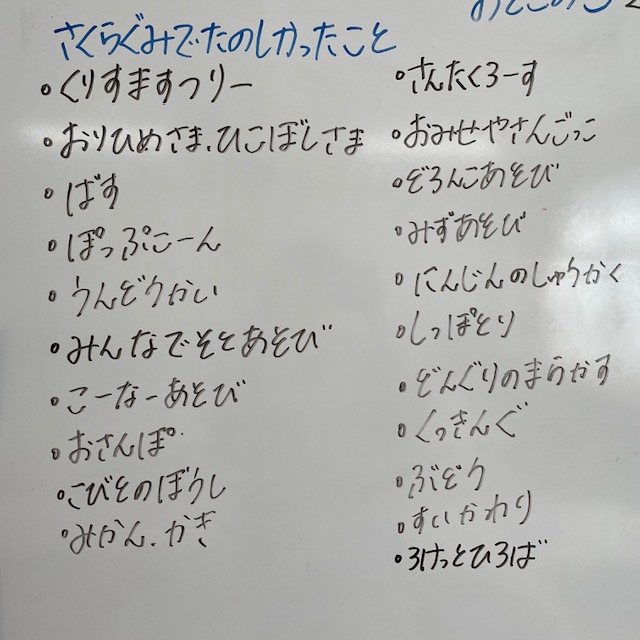 さくらぐみでたのしかったこと
・くりすますつりー
・おりひめさま、ひこぼしさま
・ばす
・ぽっぷこーん
・うんどうかい
・みんなでそとあそび
・こーなーあそび
・おさんぽ
・こびとのぼうし
・みかん、かき
・さんたくろーす
・おみせやさんごっこ
・どろんこあそび
・みずあそび
・にんじんのしゅうかく
・しっぽとり
・どんぐりのまらかす
・くっきんぐ
・ぶどう
・すいかわり
・ろけっとひろば